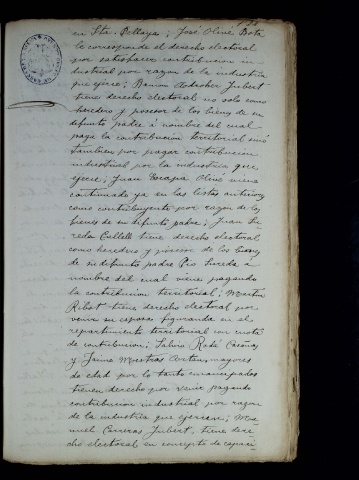 en Sta. Pellaya; José Olivé Bota
le corresponde el derecho electoral
por satisfacer contribucion in
dustrial por razon de la industria
que ejerce; Ramon Gubert
tiene derecho electoral no solo como
heredero y posesor de los bienes de su
difunto padre á nombre del cual
paga la contribucion territorial sinó
tambien por pagar contribucion
industrial por la industria que
ejerce; Juan Olivé viene
continuado ya en las listas anteriores
como contribuyente por razon de los
bienes de su difunto padre; Juan Su
reda Callell tiene derecho electoral
como heredero y posesor de los bienes
de su difunto padre Pio Sureda á
nombre del cual viene pagando
la contribucion territorial; Martin
Ribot tiene derecho electoral por
venir su esposa figurando en el
repartimiento territorial con cuota
de contribucion; Salvio Rodá
y Jaime mayores
de edad por lo tanto emancipados
tienen derecho por venir pagando
contribucion industrial por razon
de la industria que ejercen; Ma
nuel Carreras Jubert, tiene dere
cho electoral en concepto de capaci